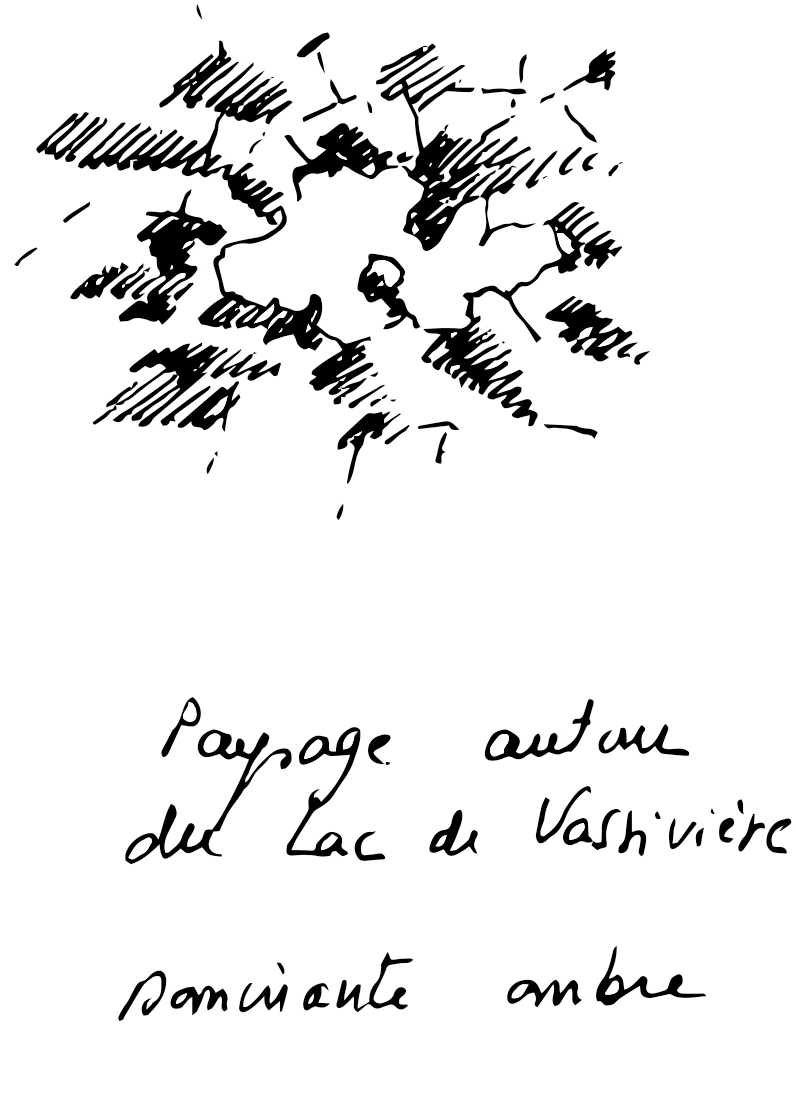 Paysage autour
du Lac de Vassivière
dominante ombre